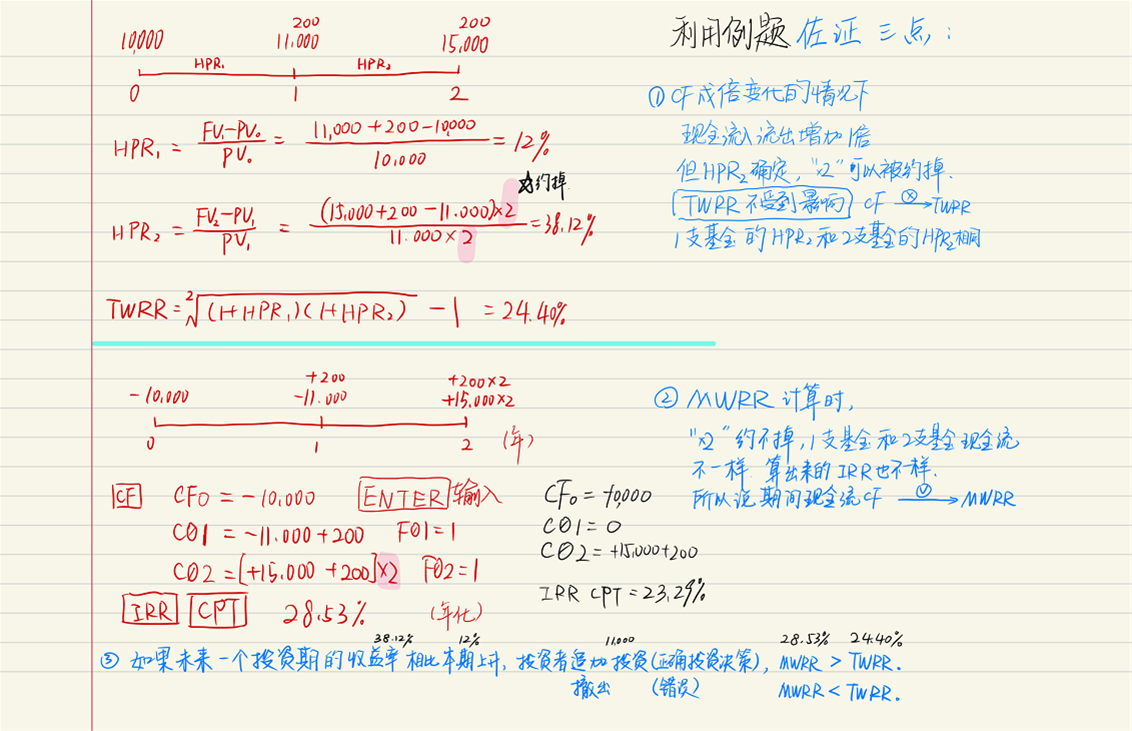 利用例题佐证三点:
200 200
10,000 11.000 15,000
HPR₁ HPR₂
0 1 2
HPR₁ = (FV₁-PV₀)/PV₀ = (11,000+200-10,000)/10,000 = 12%
约掉
HPR₂ = (FV₂-PV₁)/PV₁ = ((15,000+200-11.000)×2)/(11.000×2) = 38.12%
TWRR = ²√(1+HPR₁)(1+HPR₂) - 1 = 24.40%
① CF成倍变化的情况下
现金流入流出增加1倍
但HPR₂确定,"×2"可以被约掉.
TWRR不受到影响 CF ⓧ→TWRR
1支基金的HPR₂和2支基金的HPR₂相同
+200 +200×2
-10,000 -11.000 +15.000×2
0 1 2 (年)
CF CF0 = -10,000 ENTER 输入
C01 = -11.000+200 F01=1
C02 = [+15.000+200]×2 F02=1
IRR CPT 28.53% (年化)
CF₀ = -10,000
C01 = 0
C02 = +15,000+200
IRR CPT = 23.29%
② MWRR 计算时,
"×2"约不掉,1支基金和2支基金现金流
不一样 算出来的IRR也不一样.
所以说期间现金流CF ✓→ MWRR
38.12% 12% 11.000 28.53% 24.40%
③ 如果未来一个投资期的收益率相比本期上升,投资者追加投资(正确投资决策), MWRR > TWRR.
撤出 (错误) MWRR < TWRR.